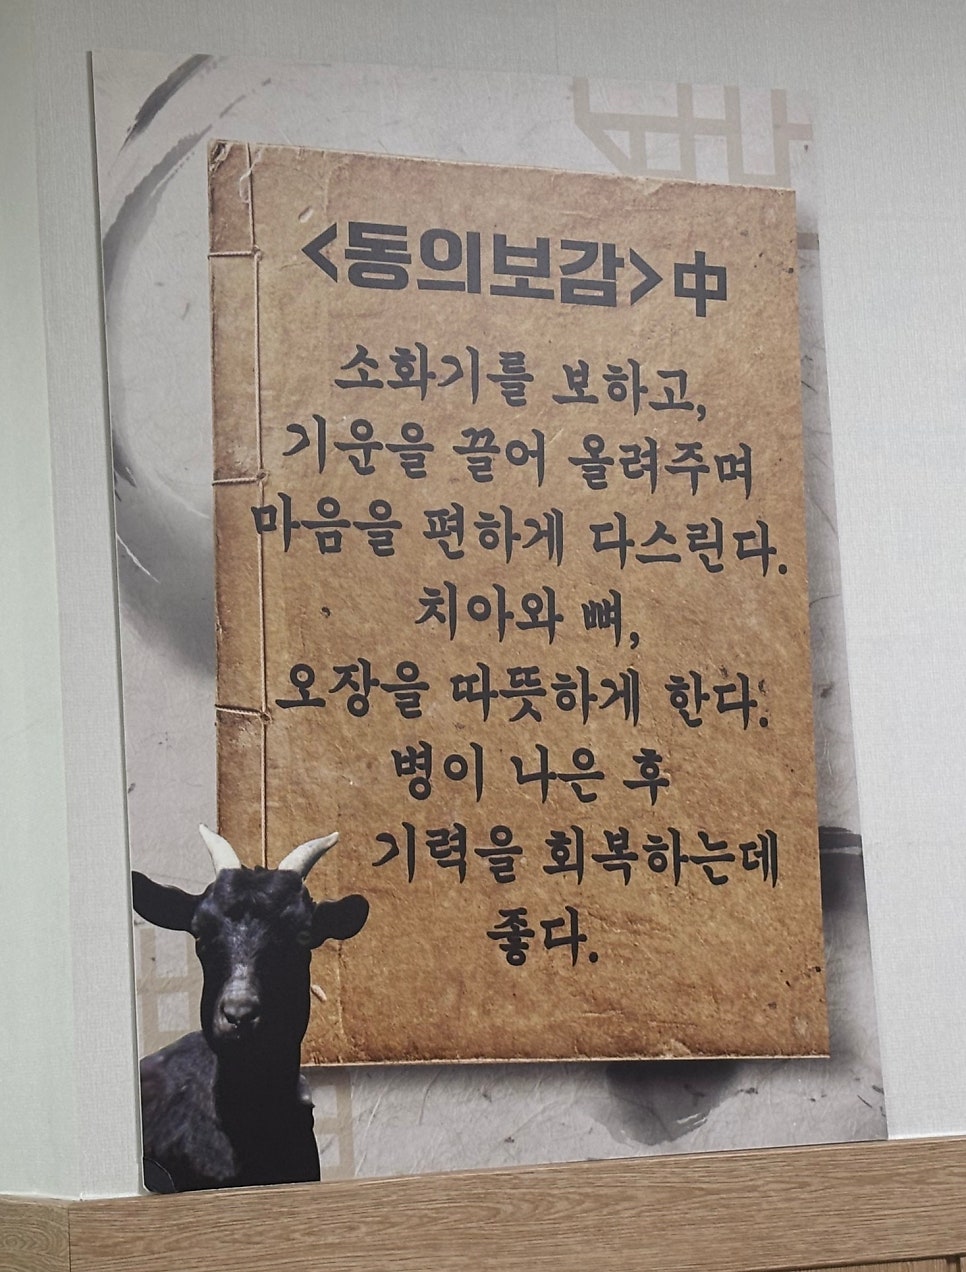 <동의보감>中
소화기를 보하고,
기운을 끌어 올려주며
마음을 편하게 다스린다.
치아와 뼈,
오장을 따뜻하게 한다.
병이 나은 후
기력을 회복하는데
좋다.